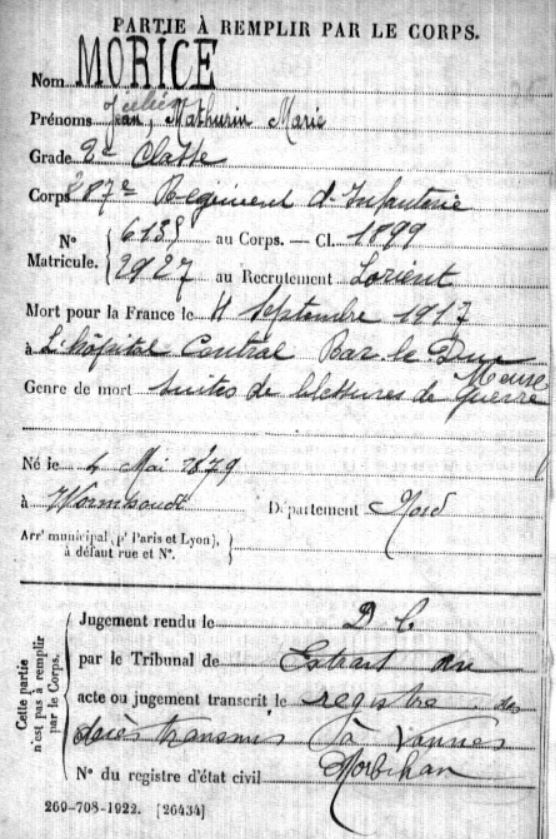 PARTIE À REMPLIR PAR LE CORPS.
Nom MORICE
Julien
Prénoms Jean, Mathurin Marie
Grade 2e Classe
Corps 287e Régiment d'Infanterie
N° Matricule. 6135 au Corps. — Cl. 1899
2927 au Recrutement Lorient
Mort pour la France le Septembre 1917
à L'hôpital Central Bar-le-Duc
Meuse
Genre de mort Suites de blessures de Guerre
Né le 4 Mai 1879
à Wormhoudt Département Nord
Arrt municipal (pr Paris et Lyon),
à défaut rue et N°.
Cette partie n'est pas à remplir par le Corps.
Jugement rendu le D C
par le Tribunal de Extrait du
acte ou jugement transcrit le registre des
décès transmis à Vannes
N° du registre d'état civil Morbihan
269-708-1922. [26434]